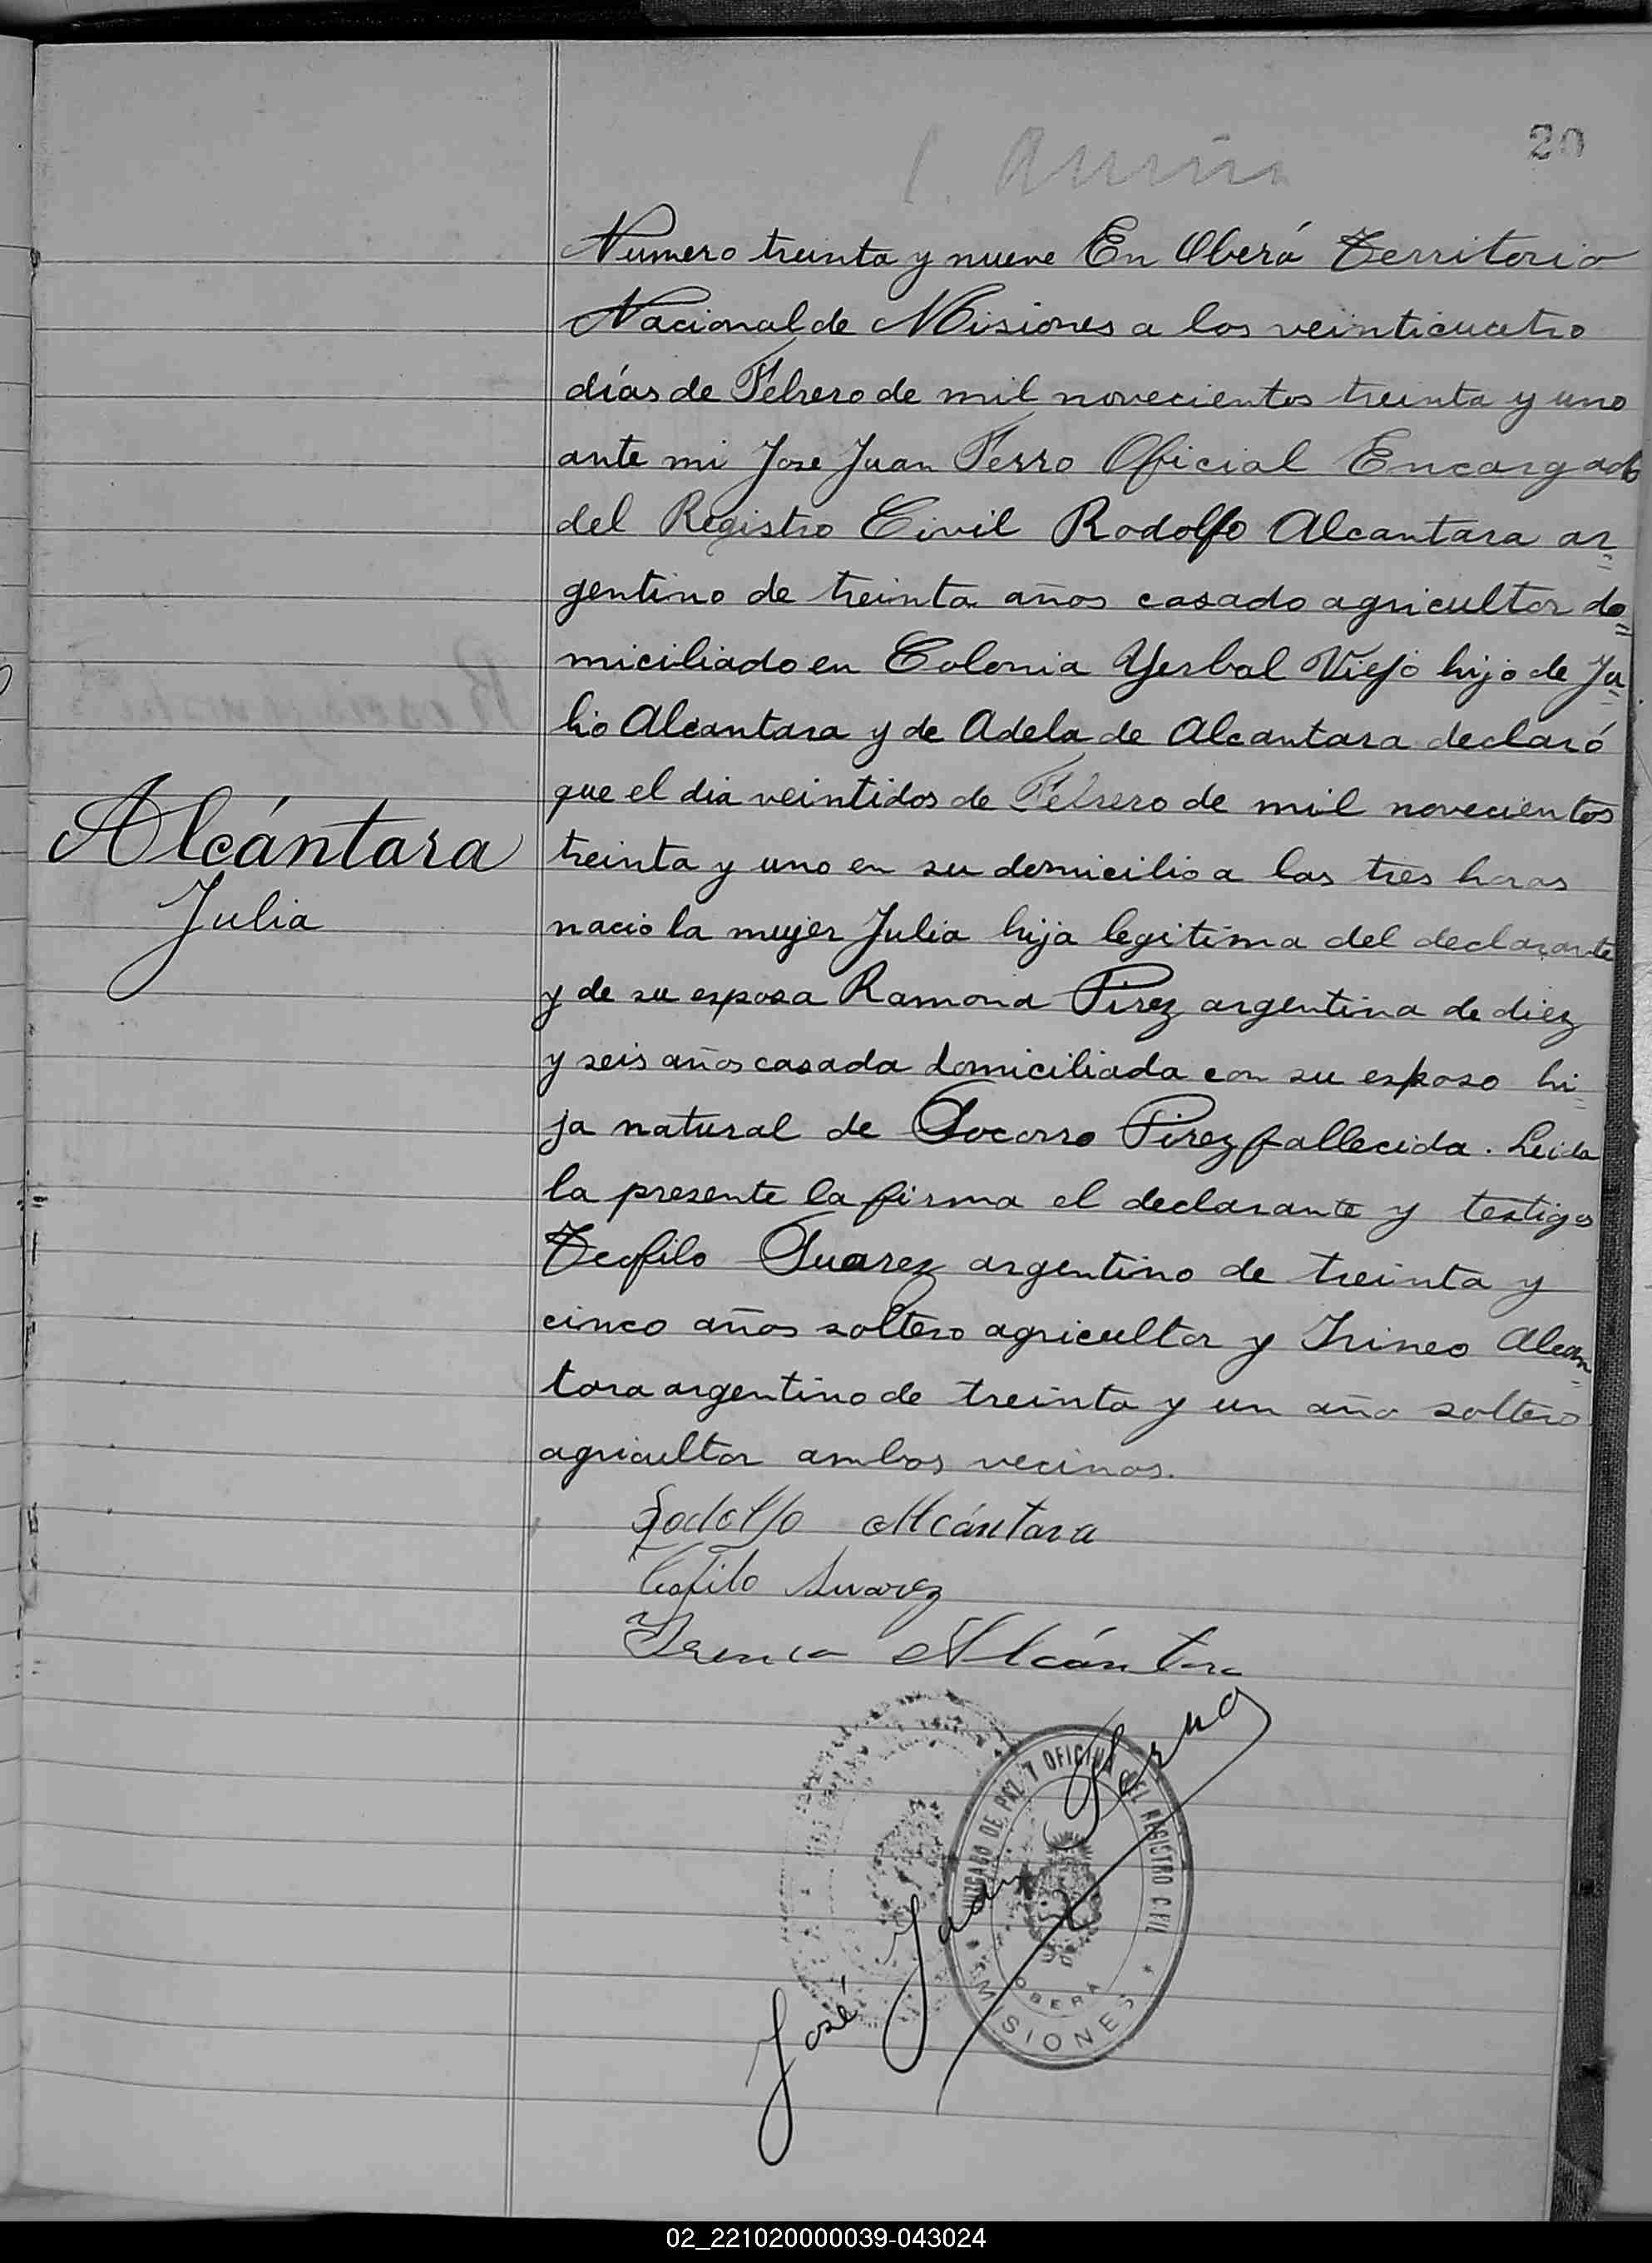 20
Numero treinta y nueve En Oberá Territorio
Nacional de Misiones a los veinticuatro
días de Febrero de mil novecientos treinta y uno
ante mi Jose Juan Ferro Oficial Encargado
del Registro Civil Rodolfo Alcantara ar=
gentino de treinta años casado agricultor do=
miciliado en Colonia Yerbal Viejo hijo de Ju=
lio Alcantara y de Adela de Alcantara declaró
que el dia veintidos de Febrero de mil novecientos
treinta y uno en su domicilio a las tres horas
nacio la mujer Julia hija legitima del declarante
y de su esposa Ramona Pirez argentina de diez
y seis años casada domiciliada con su esposo hi=
ja natural de Socorro Pirez fallecida. Leida
la presente la firma el declarante y testigos
Teofilo Suarez argentino de treinta y
cinco años soltero agricultor y Irineo Alcan=
tara argentino de treinta y un año soltero
agricultor ambos vecinos.
Alcántara
Julia
Rodolfo Alcántara
Teofilo Suarez
Alcántara
José Juan Ferro
JUZGADO DE PAZ Y OFICINA DEL REGISTRO CIVIL
OBERA
MISIONES
02_221020000039-043024